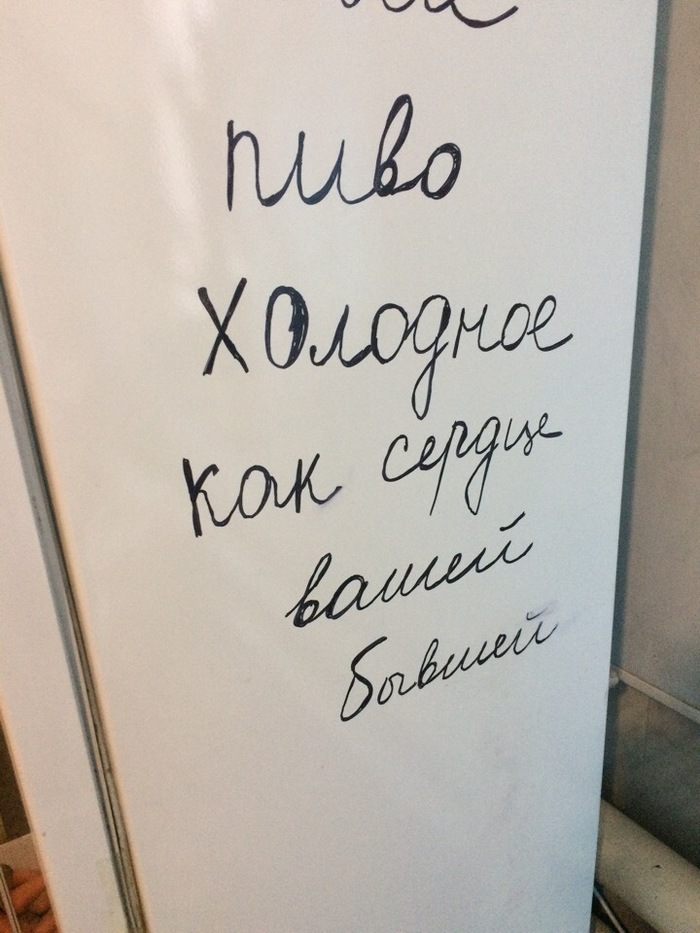 пиво
холодное
как сердце
вашей
бывшей